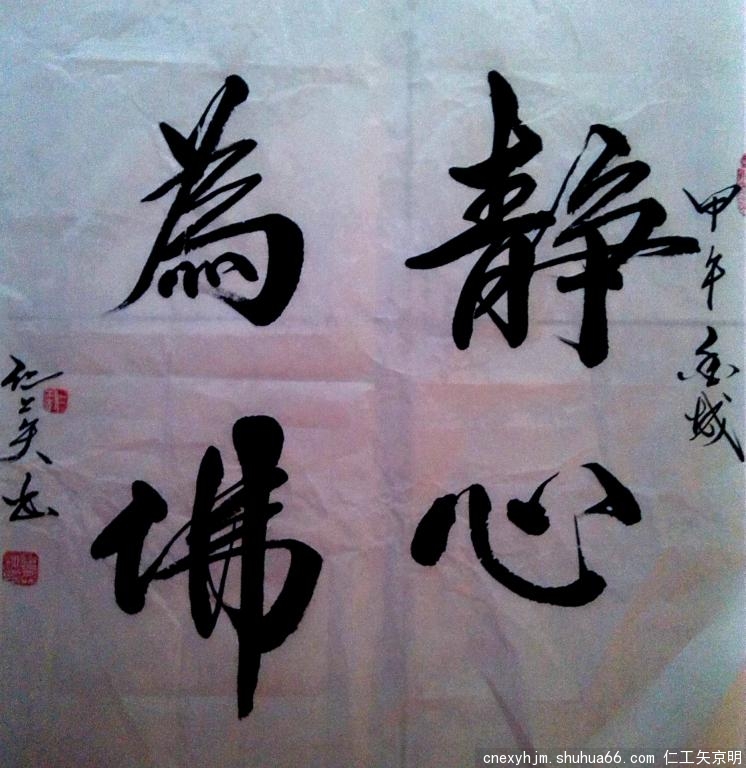 甲午金城
静心
為佛
仁工矢书
cnexyhjm.shuhua66.com 仁工矢京明